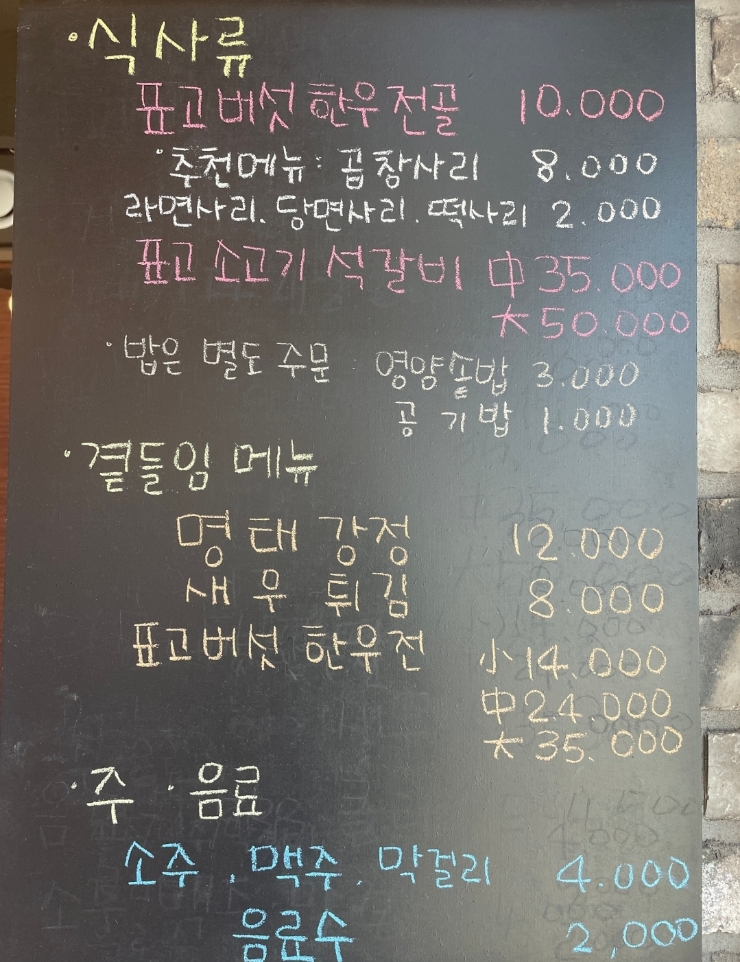 ·식사류
표고버섯 한우전골 10.000
·추천메뉴: 곱창사리 8.000
라면사리.당면사리.떡사리 2.000
표고 소고기 석갈비 中 35.000
大 50.000
·밥은 별도 주문 영양솥밥 3.000
공기밥 1.000
·곁들임 메뉴
명태강정 12.000
새우튀김 8.000
표고버섯 한우전 小 14.000
中 24.000
大 35.000
·주·음료
소주.맥주.막걸리 4.000
음료수 2,000